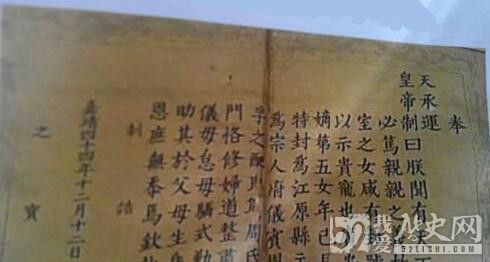 奉
天承運
皇帝制曰朕聞有
必篤親親之
室之女咸有封
以示貴寵也
嫡第五女年已長
特封爲江原縣
爲宗人府儀賓
孚之配
門恪修婦道整肅
儀毋怠毋驕式勤
助其於父母生
恩庶無忝焉欽
制誥
嘉靖四十四年十二月十二日
之寶
52LISHI.COM